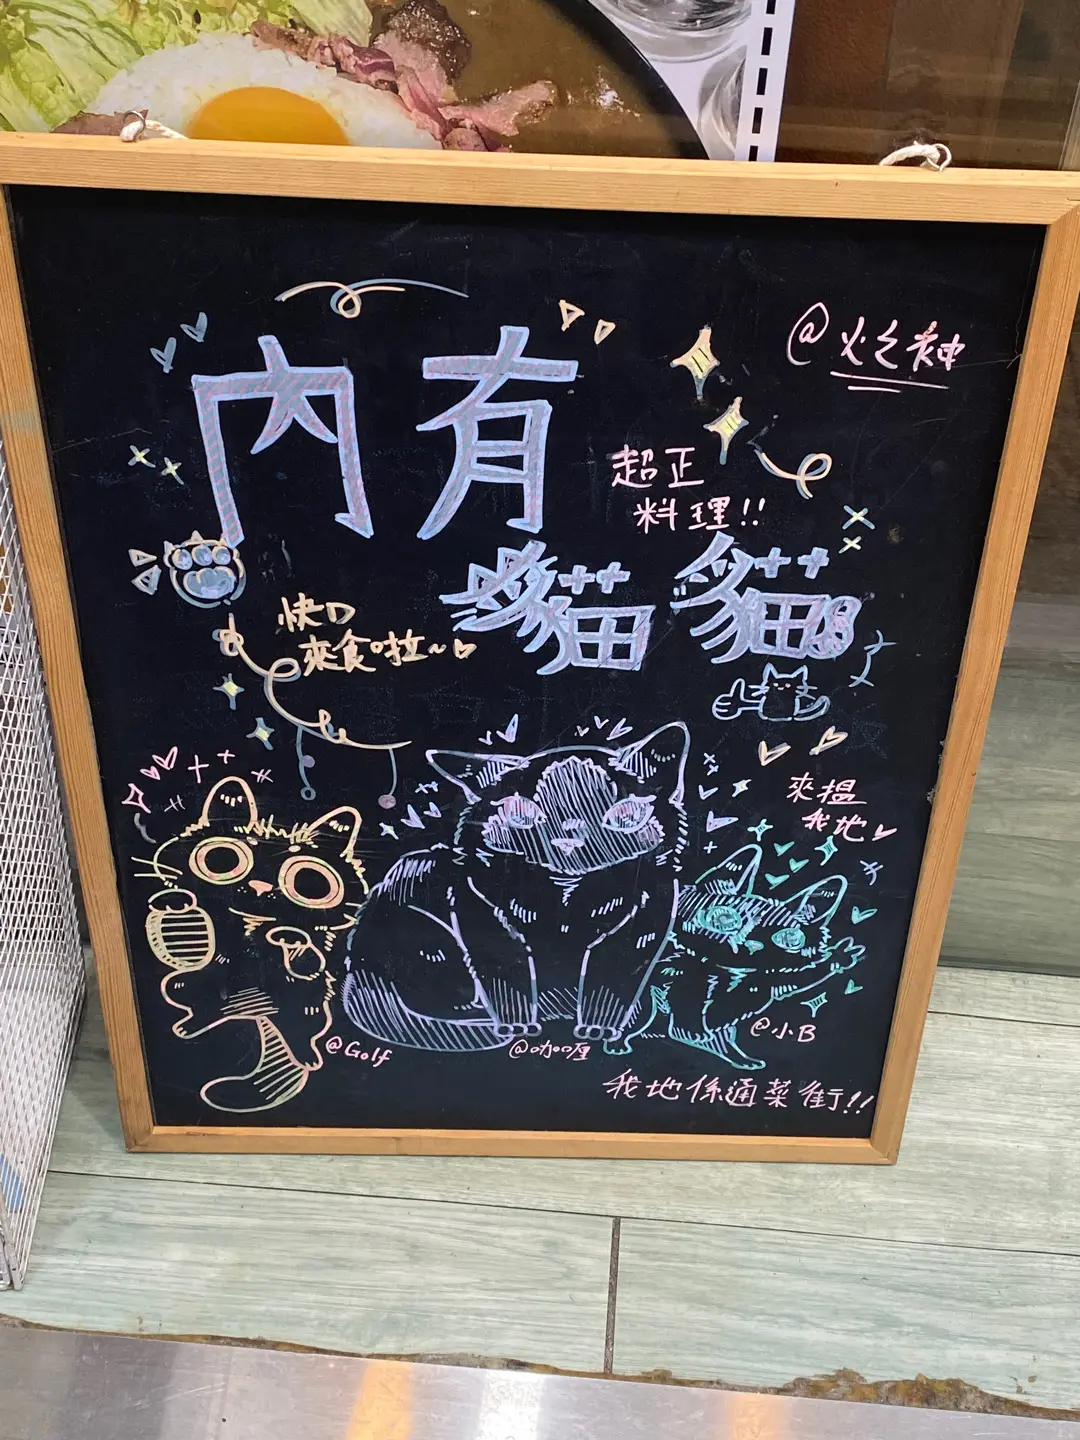 內有
貓貓
@火乙神
超正
料理!!
快D
來食啦~
來搵
我地
@Golf
@咖喱
@小B
我地係通菜街!!